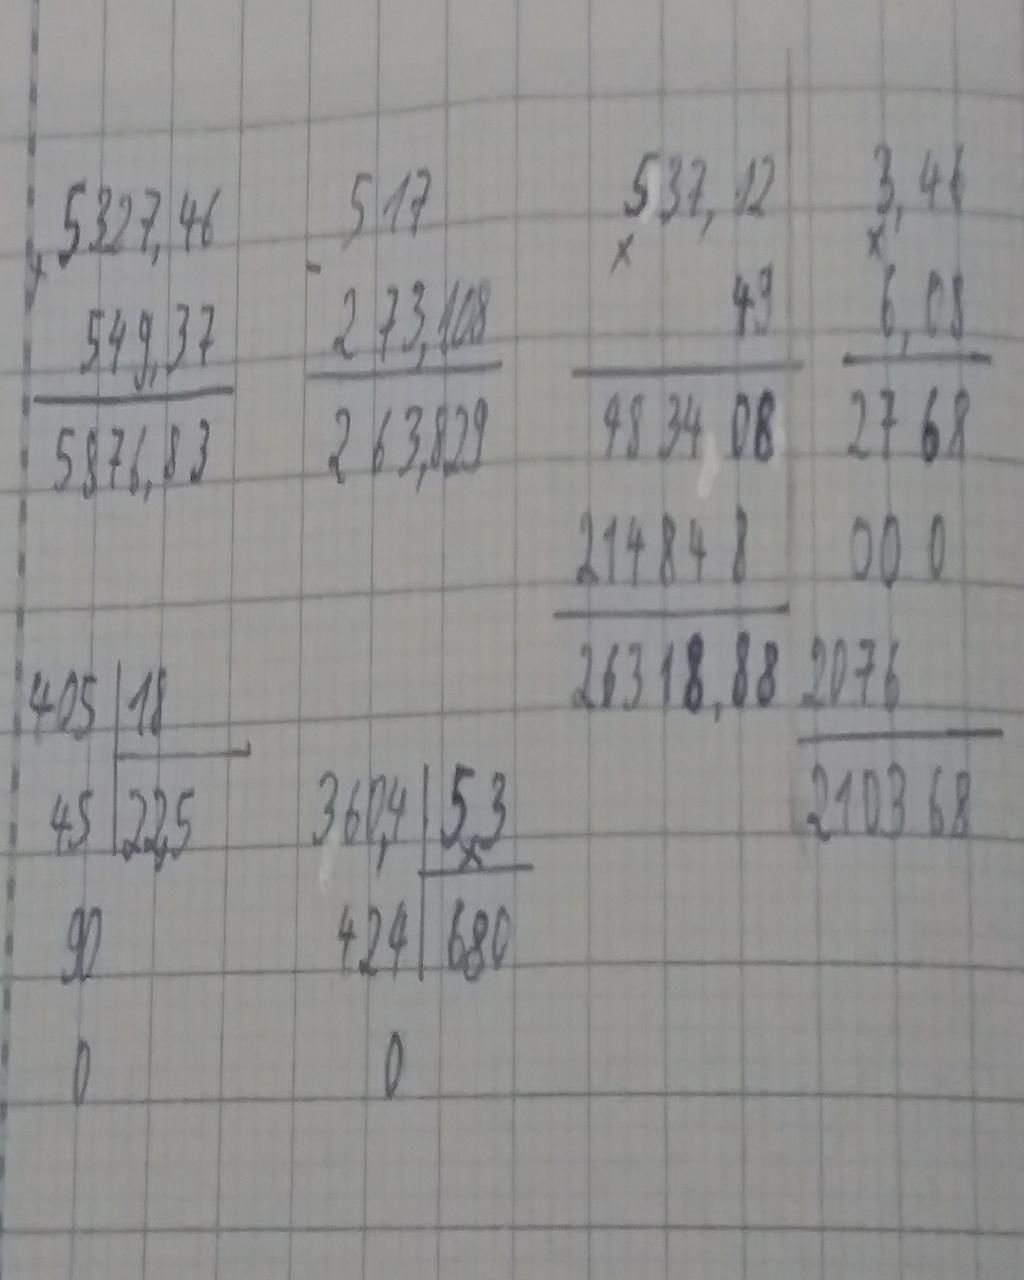 + 5327,46
549,37
5876,83
- 517
273,108
263,829
× 537,12
49
4834 08
214848
26318,88
× 3,46
6,08
2768
000
2076
210368
405 | 18
45 | 22,5
90
0
360,4 | 5,3
424 | 680
0